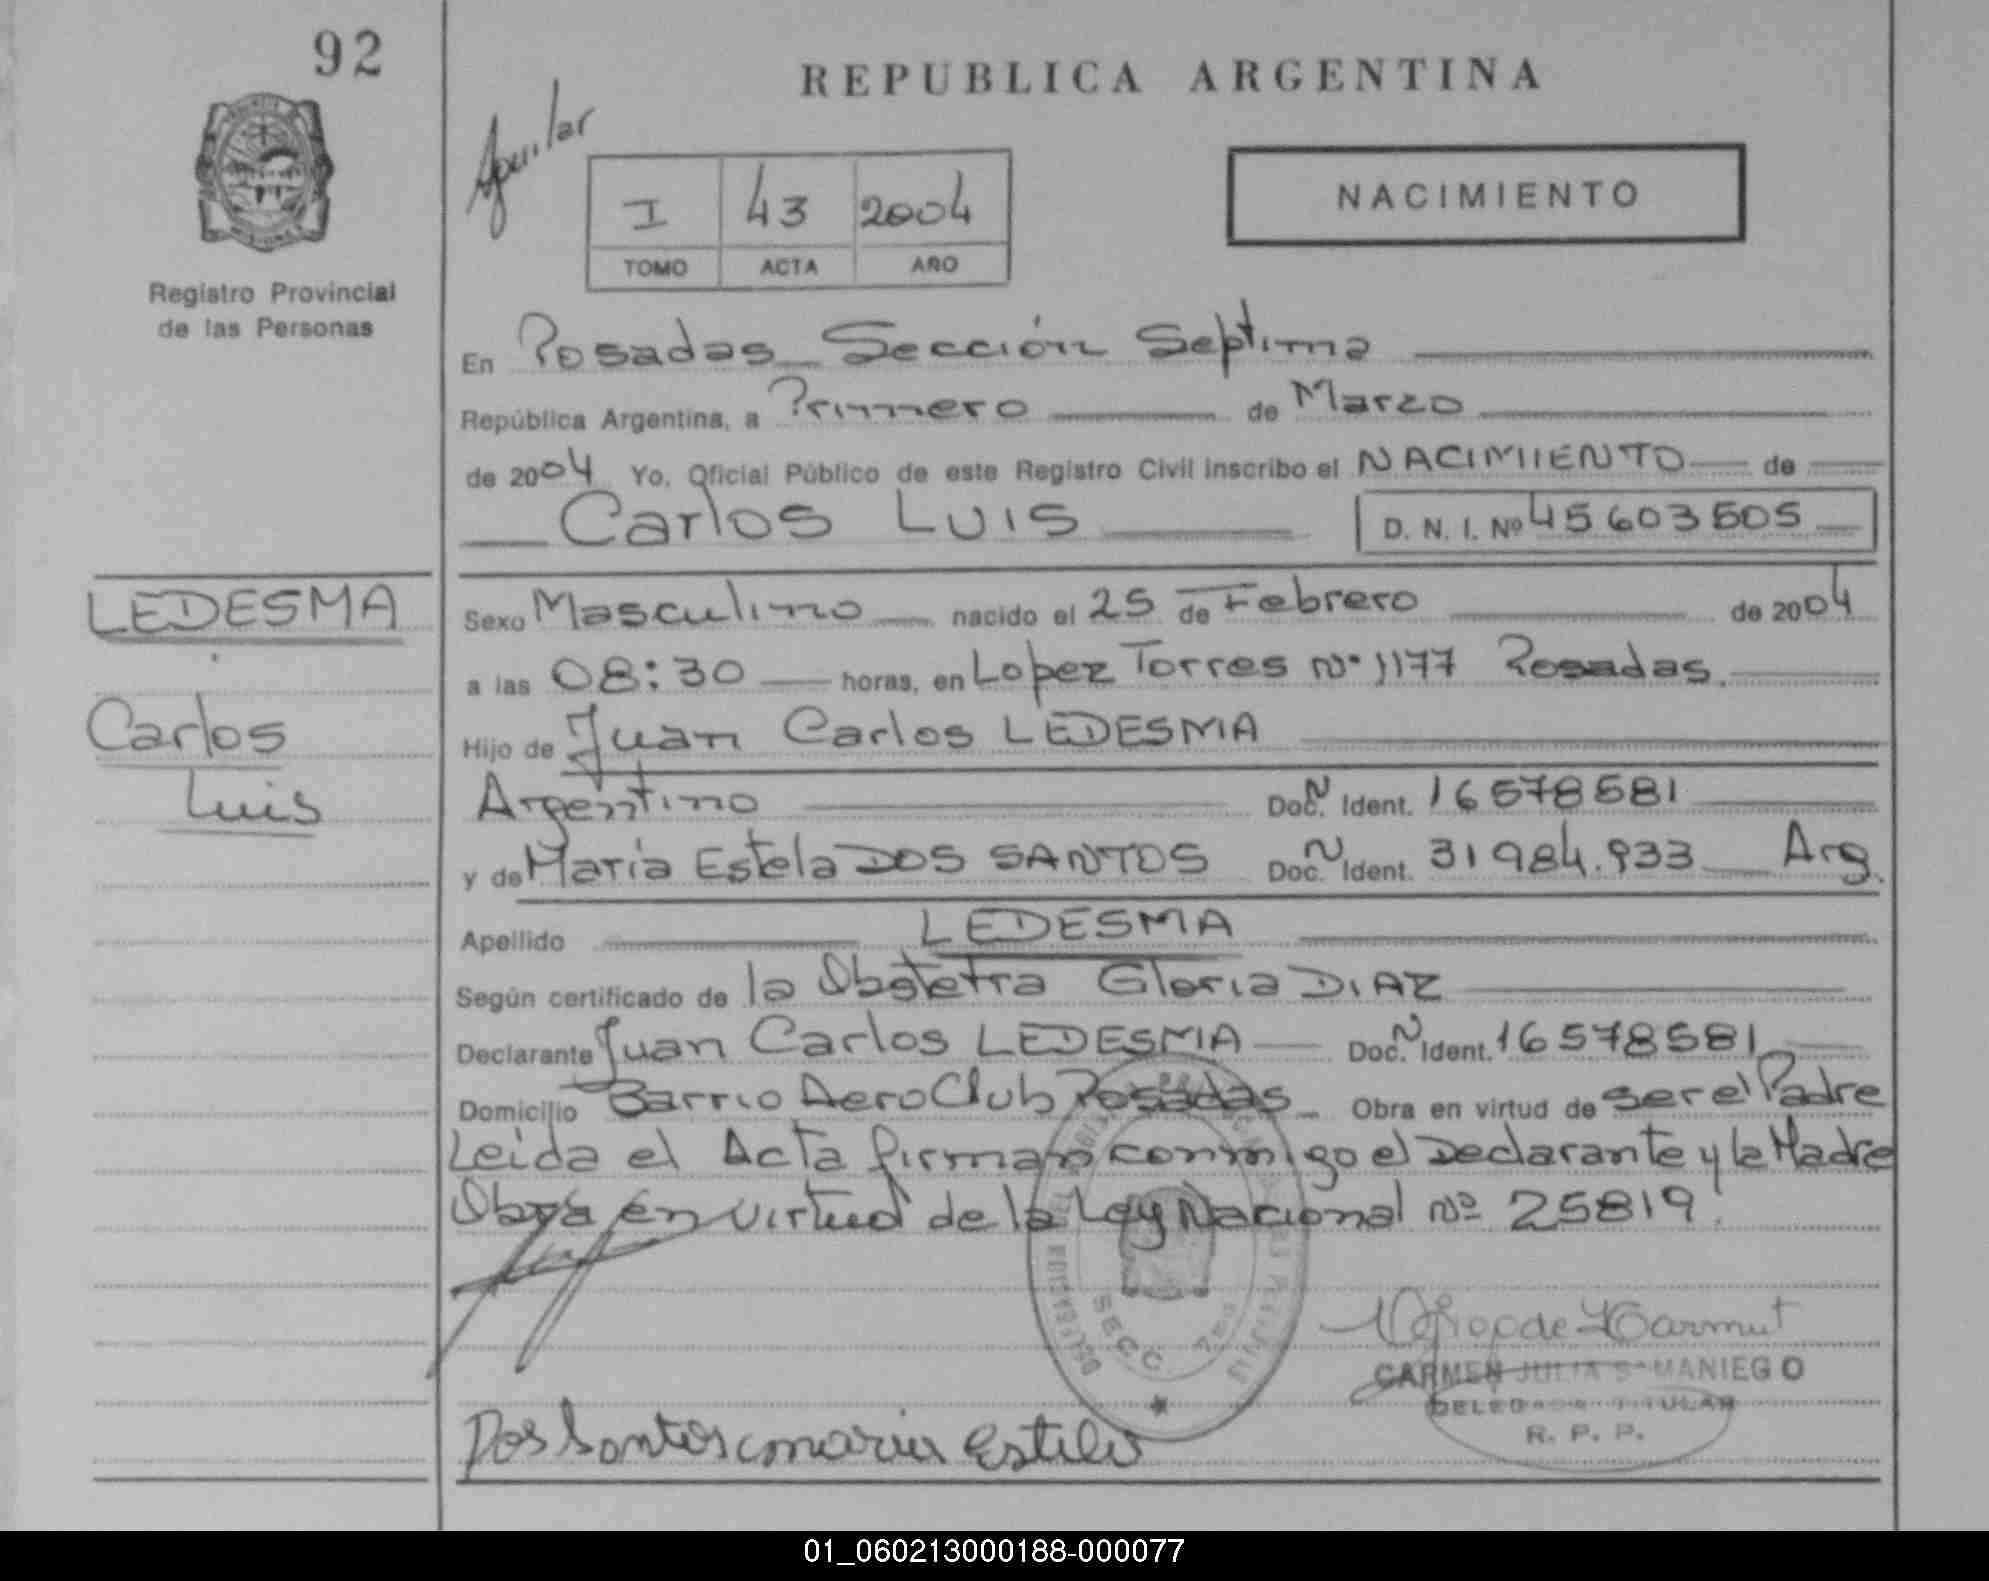 92
REPUBLICA ARGENTINA
Aguilar
I 43 2004
TOMO ACTA AÑO
NACIMIENTO
Registro Provincial
de las Personas
En Posadas Sección Septima
República Argentina, a Primero de Marzo
de 2004 Yo, Oficial Público de este Registro Civil inscribo el NACIMIENTO de
Carlos Luis D. N. I. Nº 45603505
LEDESMA
Carlos
Luis
Sexo Masculino nacido el 25 de Febrero de 2004
a las 08:30 horas, en Lopez Torres Nº 1177 Posadas.
Hijo de Juan Carlos LEDESMA
Argentino Doc. N Ident. 16578581
y de Maria Estela DOS SANTOS Doc. N Ident. 31984.933 Arg.
Apellido LEDESMA
Según certificado de la Obstetra Gloria DIAZ
Declarante Juan Carlos LEDESMA Doc. N Ident. 16578581
Domicilio Barrio Aero Club Posadas Obra en virtud de ser el Padre
Leida el Acta firman conmigo el Declarante y la Madre
Obra en virtud de la Ley Nacional Nº 25819.
SECC. 7
CARMEN JULIA SAMANIEGO
DELEGADA TITULAR
R. P. P.
Dos Santos maria Estela
01_060213000188-000077